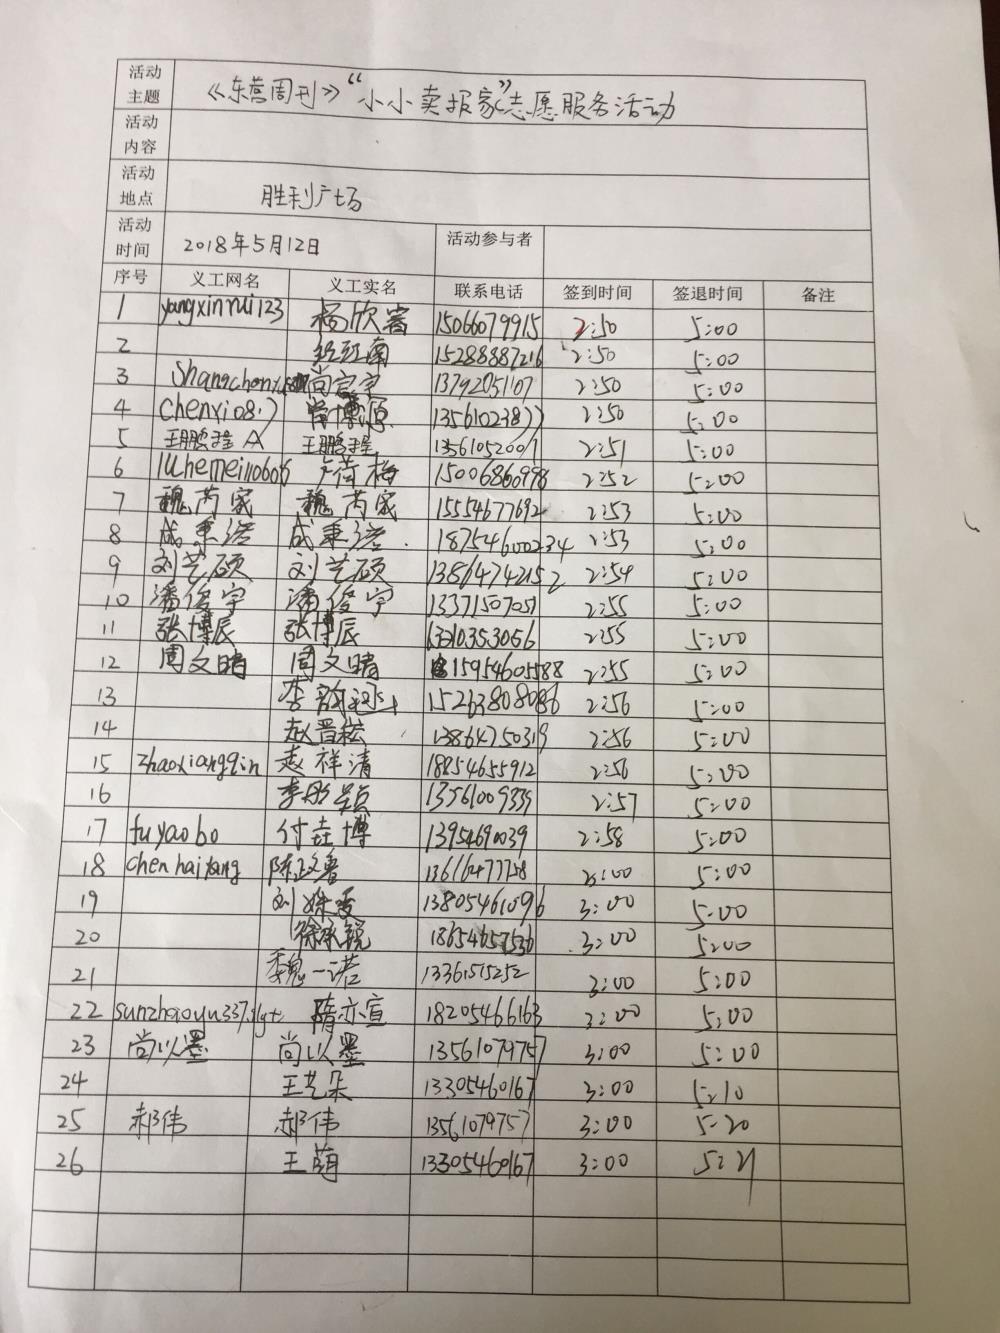 活动主题 《东营周刊》“小小卖报家”志愿服务活动
活动内容
活动地点 胜利广场
活动时间 2018年5月12日 活动参与者
序号 义工网名 义工实名 联系电话 签到时间 签退时间 备注
1 yangxinrui123 杨欣睿 15066079915 2:50 5:00
2 15288887216 2:50 5:00
3 尚宸宇 13792051107 2:50 5:00
4 chenxi0817 2:50 5:00
5 王鹏程A 王鹏程 13561052001 2:51 5:00
6 卢荷梅 15006860998 2:52 5:00
7 魏芮家 魏芮家 15554677692 2:53 5:00
8 成秉诺 成秉诺 18754600234 2:53 5:00
9 刘艺硕 刘艺硕 13864742152 2:54 5:00
10 潘俊宇 潘俊宇 13371507051 2:55 5:00
11 张博辰 张博辰 13210353056 2:55 5:00
12 周文晴 周文晴 15954605588 2:55 5:00
13 15263808086 2:56 5:00
14 赵晋崧 13864750319 2:56 5:00
15 zhaoxiangqin 赵祥清 18254655912 2:56 5:00
16 李彤颖 13561009339 2:57 5:00
17 fuyaobo 付垚博 13954690039 2:58 5:00
18 chenhaiyang 13616477758 3:00 5:00
19 刘姝雯 13805461096 3:00 5:00
20 徐承锐 18654657536 3:00 5:00
21 魏一诺 13361515252 3:00 5:00
22 隋亦宣 18205466163 3:00 5:00
23 尚以墨 尚以墨 13561079757 3:00 5:00
24 王艺朵 13305460167 3:00 5:10
25 郝伟 郝伟 13561079757 3:00 5:20
26 王萌 13305460167 3:00 5:21